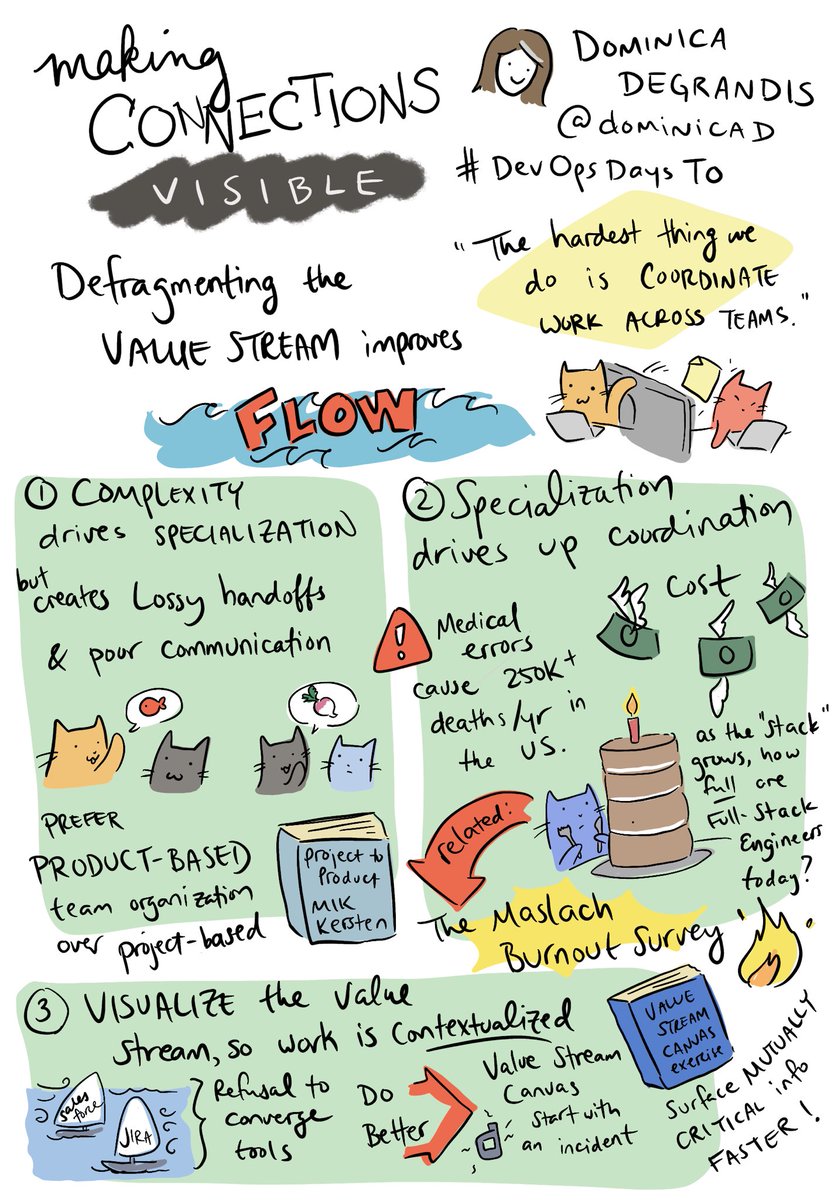 making
CONNECTIONS
VISIBLE
DOMINICA
DEGRANDIS
@dominicaD
#DevOpsDaysTo
Defragmenting the
VALUE STREAM improves
FLOW
"The hardest thing we
do is COORDINATE
WORK ACROSS TEAMS."
① COMPLEXITY
drives SPECIALIZATION
but
creates Lossy handoffs
& poor communication
PREFER
PRODUCT-BASED
team organization
over project-based
Project to
Product
MIK
Kersten
② Specialization
drives up coordination
cost
Medical
errors
cause 250K+
deaths/yr in
the US.
as the "stack"
grows, how
full are
Full-Stack
Engineers
today?
related:
The Maslach
Burnout Survey
③ VISUALIZE the value
stream, so work is Contextualized
sales
force
JIRA
Refusal to
converge
tools
Do
Better
Value Stream
Canvas
start with
an incident
VALUE
STREAM
CANVAS
exercise
Surface MUTUALLY
CRITICAL info
FASTER!